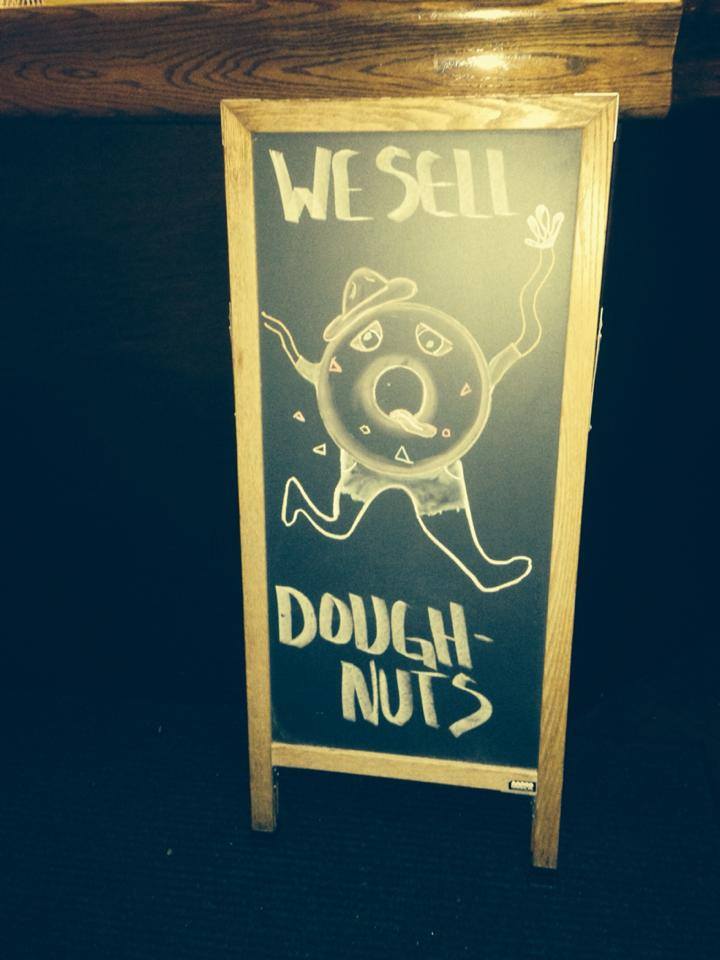 WE SELL
DOUGH-
NUTS